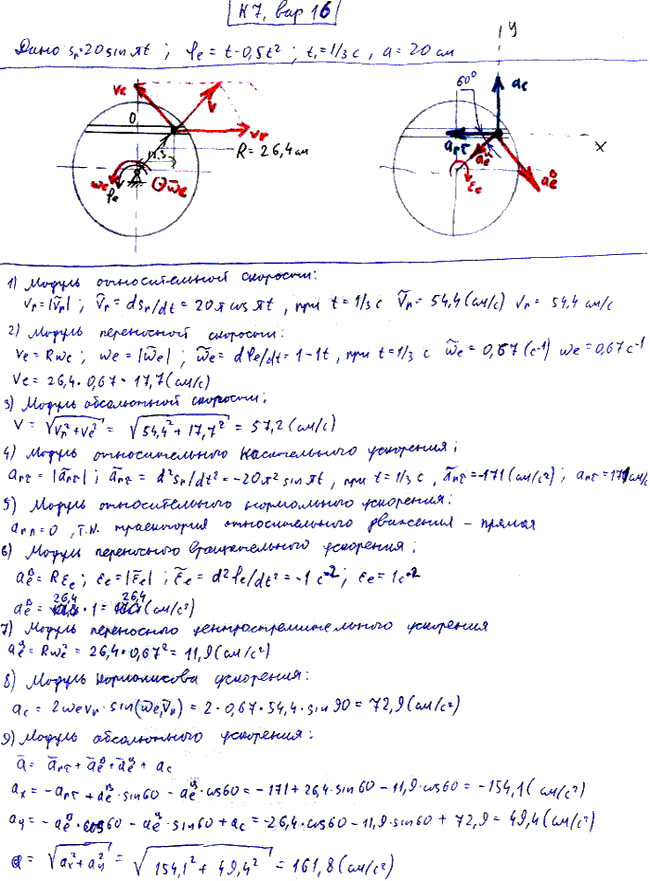 К7, вар 16
Дано Sr=20 sin πt ; φe = t-0,5t² ; t₁=1/3 c , a = 20 см
y
60°
ac
Vc
V
O
Vr
R = 26,4 см
17,3
arτ
aeц
x
ωe
φe
ω̄e
εe
aeв
1) Модуль относительной скорости:
Vr=|Ṽr| ; Ṽr = dsr/dt = 20π cos πt , при t = 1/3 c Ṽr = 54,4 (см/с) Vr = 54,4 см/с
2) Модуль переносной скорости:
Ve = Rωe ; ωe = |ω̃e| ; ω̃e = dφe/dt = 1-1t , при t = 1/3 c ω̃e = 0,67 (c⁻¹) ωe = 0,67 c⁻¹
Ve = 26,4 · 0,67 = 17,7 (см/с)
3) Модуль абсолютной скорости:
V = √Vr²+Ve² = √54,4²+17,7² = 57,2 (см/с)
4) Модуль относительного касательного ускорения:
arτ = |ãrτ| ; ãrτ = d²sr/dt² = -20π² sin πt , при t = 1/3 c , ãrτ = -171 (см/с²) ; arτ = 171 см/с
5) Модуль относительного нормального ускорения:
arn = 0 , т.к. траектория относительного движения - прямая
6) Модуль переносного вращательного ускорения:
aeв = Rεe ; εe = |ε̃e| ; ε̃e = d²φe/dt² = -1 c⁻² ; εe = 1 c⁻²
aeв = 26,4 · 1 = 26,4 (см/с²)
7) Модуль переносного центростремительного ускорения
aeц = Rωe² = 26,4 · 0,67² = 11,9 (см/с²)
8) Модуль кориолисова ускорения:
ac = 2ωeVr · sin(ω̄e,V̄r) = 2 · 0,67 · 54,4 · sin 90 = 72,9 (см/с²)
9) Модуль абсолютного ускорения:
ā = ārτ + āeв + āeц + ac
ax = -arτ + aeв · sin60 - aeц · cos60 = -171 + 26,4 · sin 60 - 11,9 · cos60 = -154,1 (см/с²)
ay = -aeв · cos60 - aeц · sin60 + ac = -26,4 · cos60 - 11,9 · sin60 + 72,9 = 49,4 (см/с²)
a = √ax²+ay² = √154,1²+49,4² = 161,8 (см/с²)